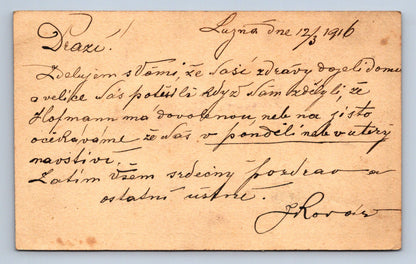 Lužná dne 12/3 1916
Drazí!
Zdělujem s Vámi, že Naší zdrávy dojeli domu
a velice Nás potěšili když Nám zdělyli, že
Hofmann má dovolenou, neb na jisto
očekáváme že Nás v ponděli neb v úterý
navštiví.
Zatím Všem srdečný pozdrav a
ostatní ústně.